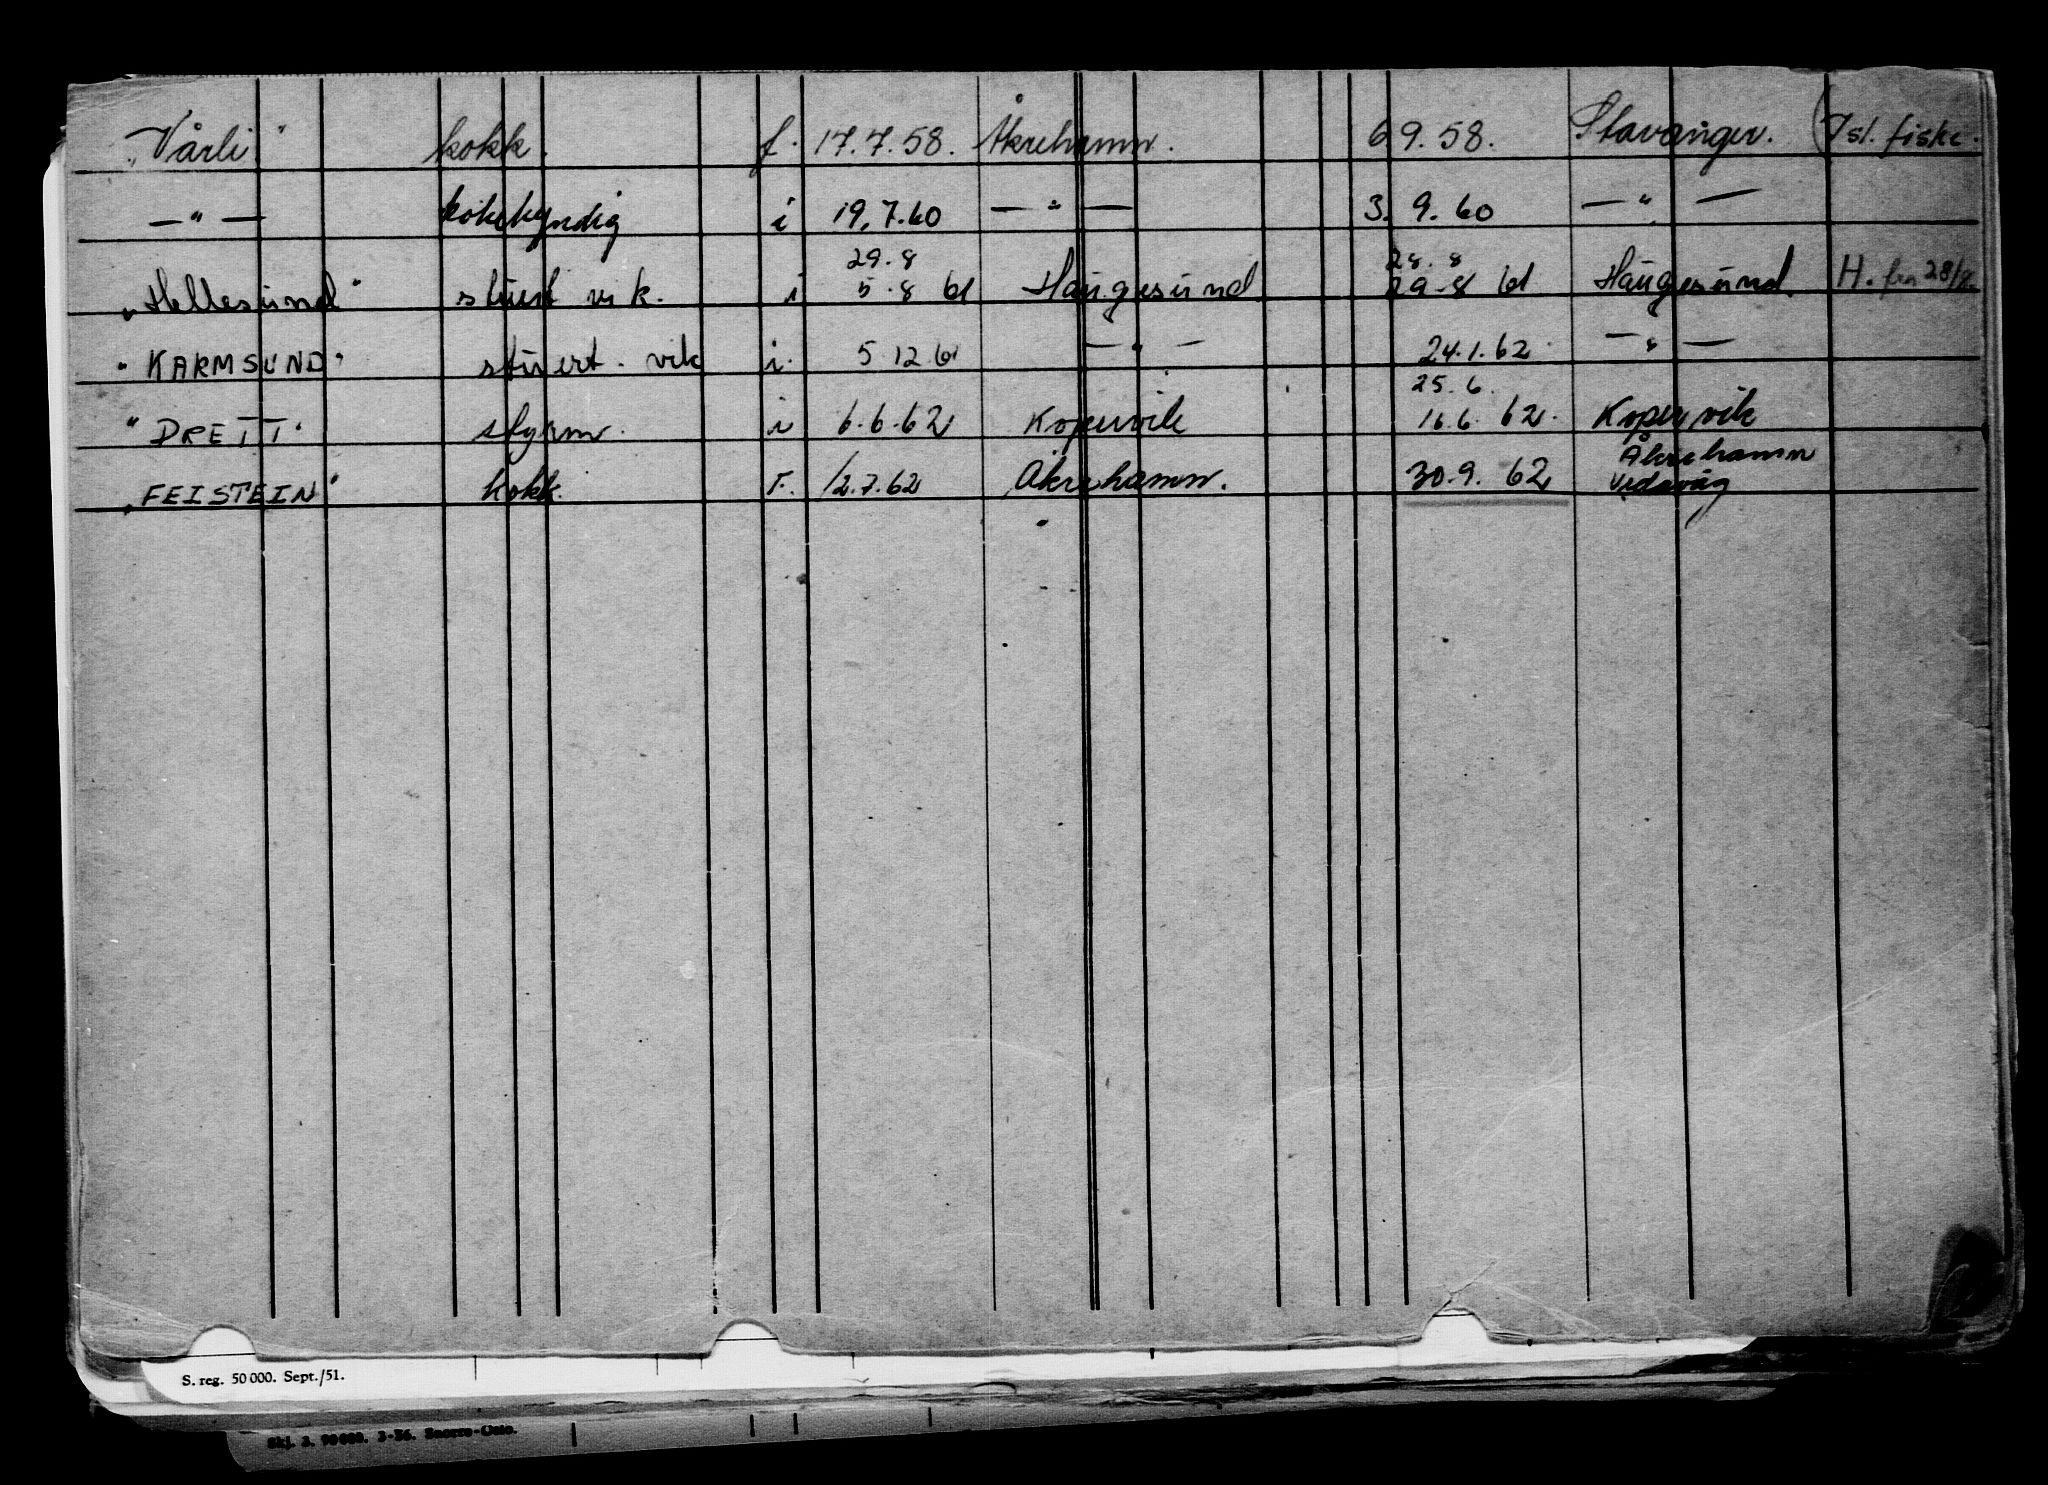 "Vårli" kokk. f. 17.7.58. Åkrehamn. 6 9.58. Stavanger. (Isl. fiske.
— " — kokekyndig i 19.7.60 — " — 3. 9. 60 — " —
29.8 28.8
"Hellesund" stuert vik. i 5.8 61 Haugesund 29.8 61 Haugesund. H. fra 28/8.
"KARMSUND" stuert. vik i. 5 12 61 — " — 24.1.62 — " —
25.6.
"DRETT" styrm. i 6.6.62 Kopervik 16.6.62. Kopervik
Åkrehamn
"FEISTEIN" kokk. F. 12.7.62 Åkrehamn. 30.9.62 Vedavåg
S. reg. 50 000. Sept./51.
Skj. 2. 90 000. 3-56. Snorre-Oslo.